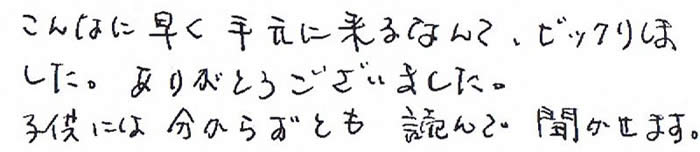 こんなに早く手元に来るなんて、ビックリしま
した。ありがとうございました。
子供には分からずとも 読んで聞かせます。